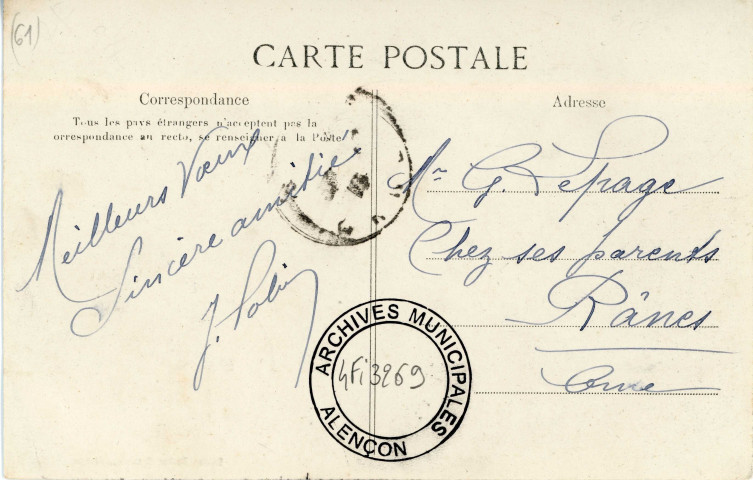 (61)
CARTE POSTALE
Correspondance
Tous les pays étrangers n'acceptent pas la
orrespondance au recto, se renseigner à la Poste
Meilleurs Vœux
Sincère amitié
J.
Adresse
Mr G. Lepage
Chez ses parents
Rânes
Orne
ARCHIVES MUNICIPALES
4Fi3969
ALENÇON